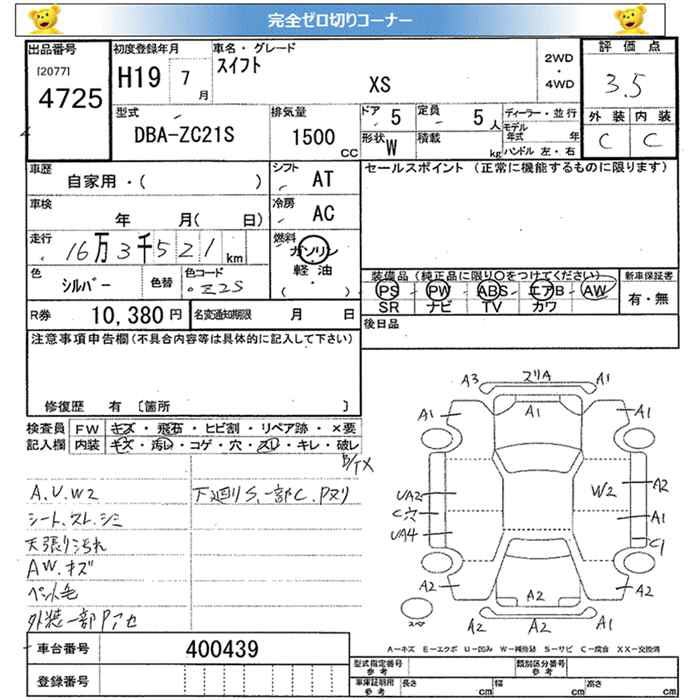 完全ゼロ切りコーナー
出品番号
[2077]
4725
初度登録年月
H19 7 月
車名・グレード
スイフト
XS
2WD
・
4WD
評価点
3.5
外装 内装
C C
型式
DBA-ZC21S
排気量
1500 CC
ドア 5
定員 5 人
形状 W
積載 kg
ディーラー・並行
モデル年式 年
ハンドル 左・右
車歴
自家用・( )
シフト AT
車検
年 月( 日)
冷房 AC
走行
16万3千521 km
燃料
ガソリン
軽油
・
( )
色
シルバー
色替
色コード
Z2S
セールスポイント (正常に機能するものに限ります)
装備品(純正品に限り○をつけてください)
PS PW ABS エアB AW
SR ナビ TV カワ
新車保証書
有・無
R券 10,380 円
名変通知期限 月 日
後日品
注意事項申告欄(不具合内容等は具体的に記入して下さい)
修復歴 有 〔箇所 〕
検査員
記入欄
FW キズ・飛石・ヒビ割・リペア跡・×要
内装 キズ・汚れ・コゲ・穴・スレ・キレ・破レ
A.U.W2
シート.スレ.シミ
天張り汚れ
AW.キズ
ペット毛
外装一部Pアセ
下廻りS.一部C.Pヌリ
A3 スリA A1
A1 A1 A1
UA2 W2 A2
C穴 A1
UA4 C1
A2 A2 A2
A2 A2 A1
スペア
車台番号 400439
登録番号
A-キズ E-エクボ U-凹み W-補修跡 S-サビ C-腐食 XX-交換済
型式指定番号
参考
類別区分番号
参考
車庫証明用
参考
長さ cm
幅 cm
高さ cm